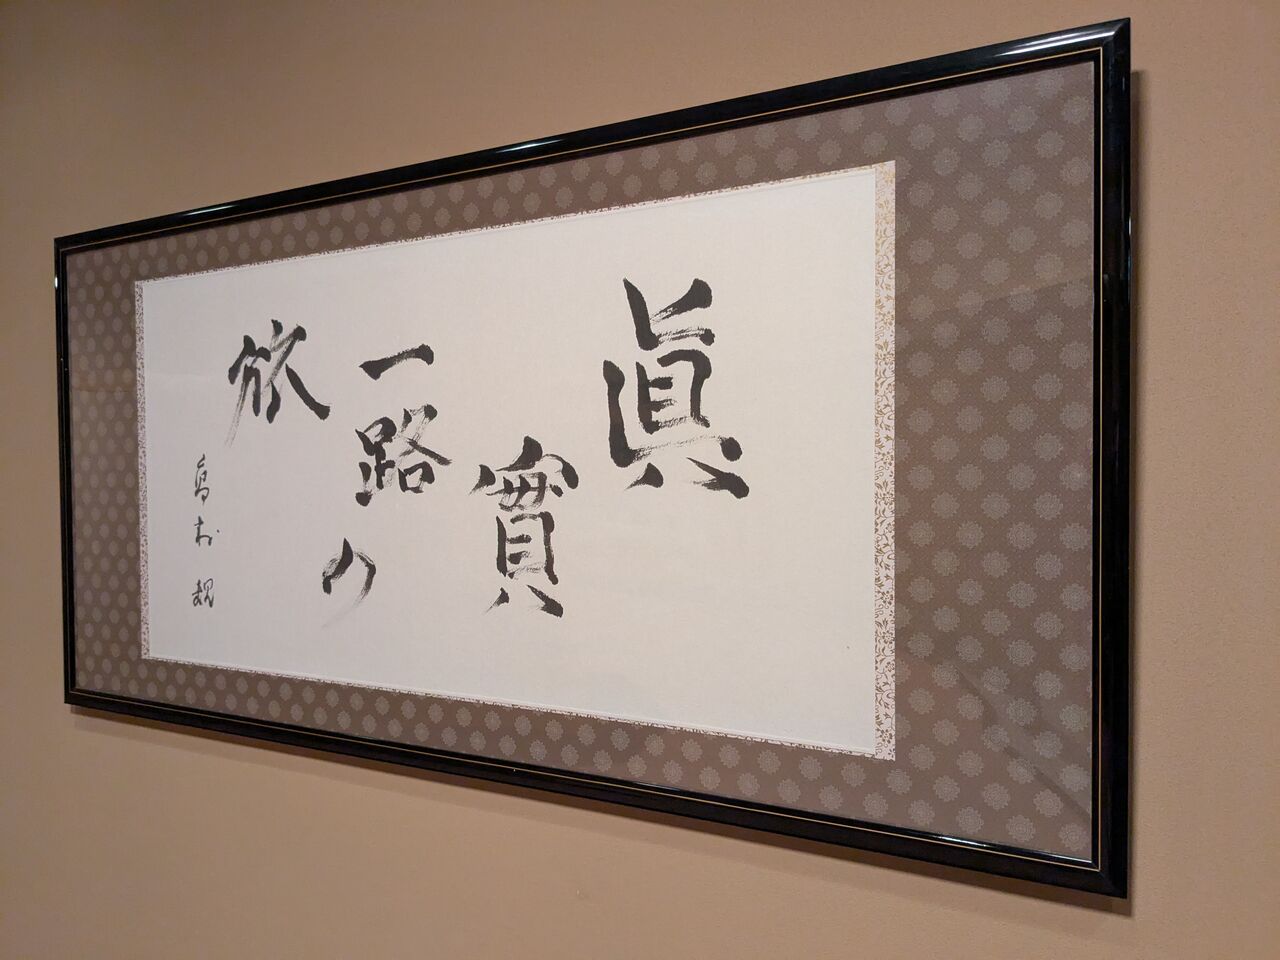 眞
實
一路
の
旅